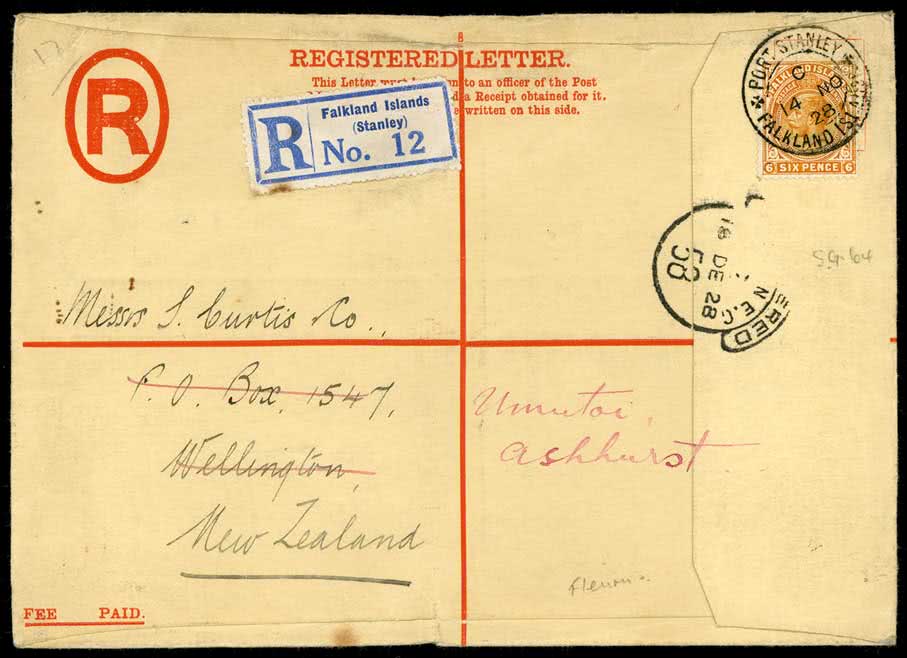 17
8
REGISTERED LETTER.
This Letter must to an officer of the Post
a Receipt obtained for it.
written on this side.
R
R
Falkland Islands
(Stanley)
No. 12
PORT STANLEY
C
14 NO
28
FALKLAND
SIX PENCE
6 6
REGISTERED
N E.C
18 DE 28
58
S.G. 64
Messrs S. Curtis & Co.,
P. O. Box, 1547,
Wellington,
New Zealand
Umutoi,
Ashhurst.
FEE PAID.